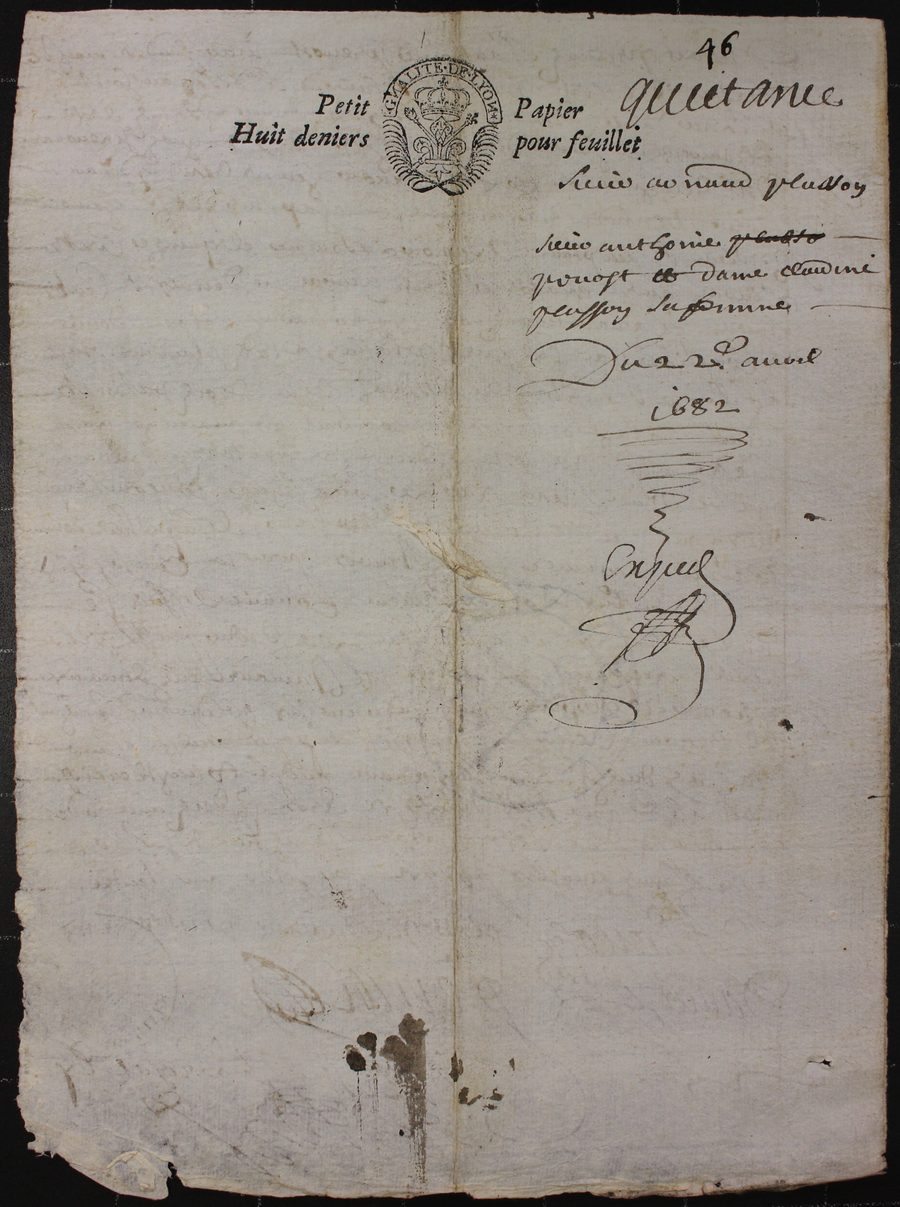 46
GNALITE·DE·LYON
Petit Papier
Huit deniers pour feuillet
quictance
plasson
sieur anthoine
prevost et dame claudine
plasson sa femme
Du 22e avril
1682